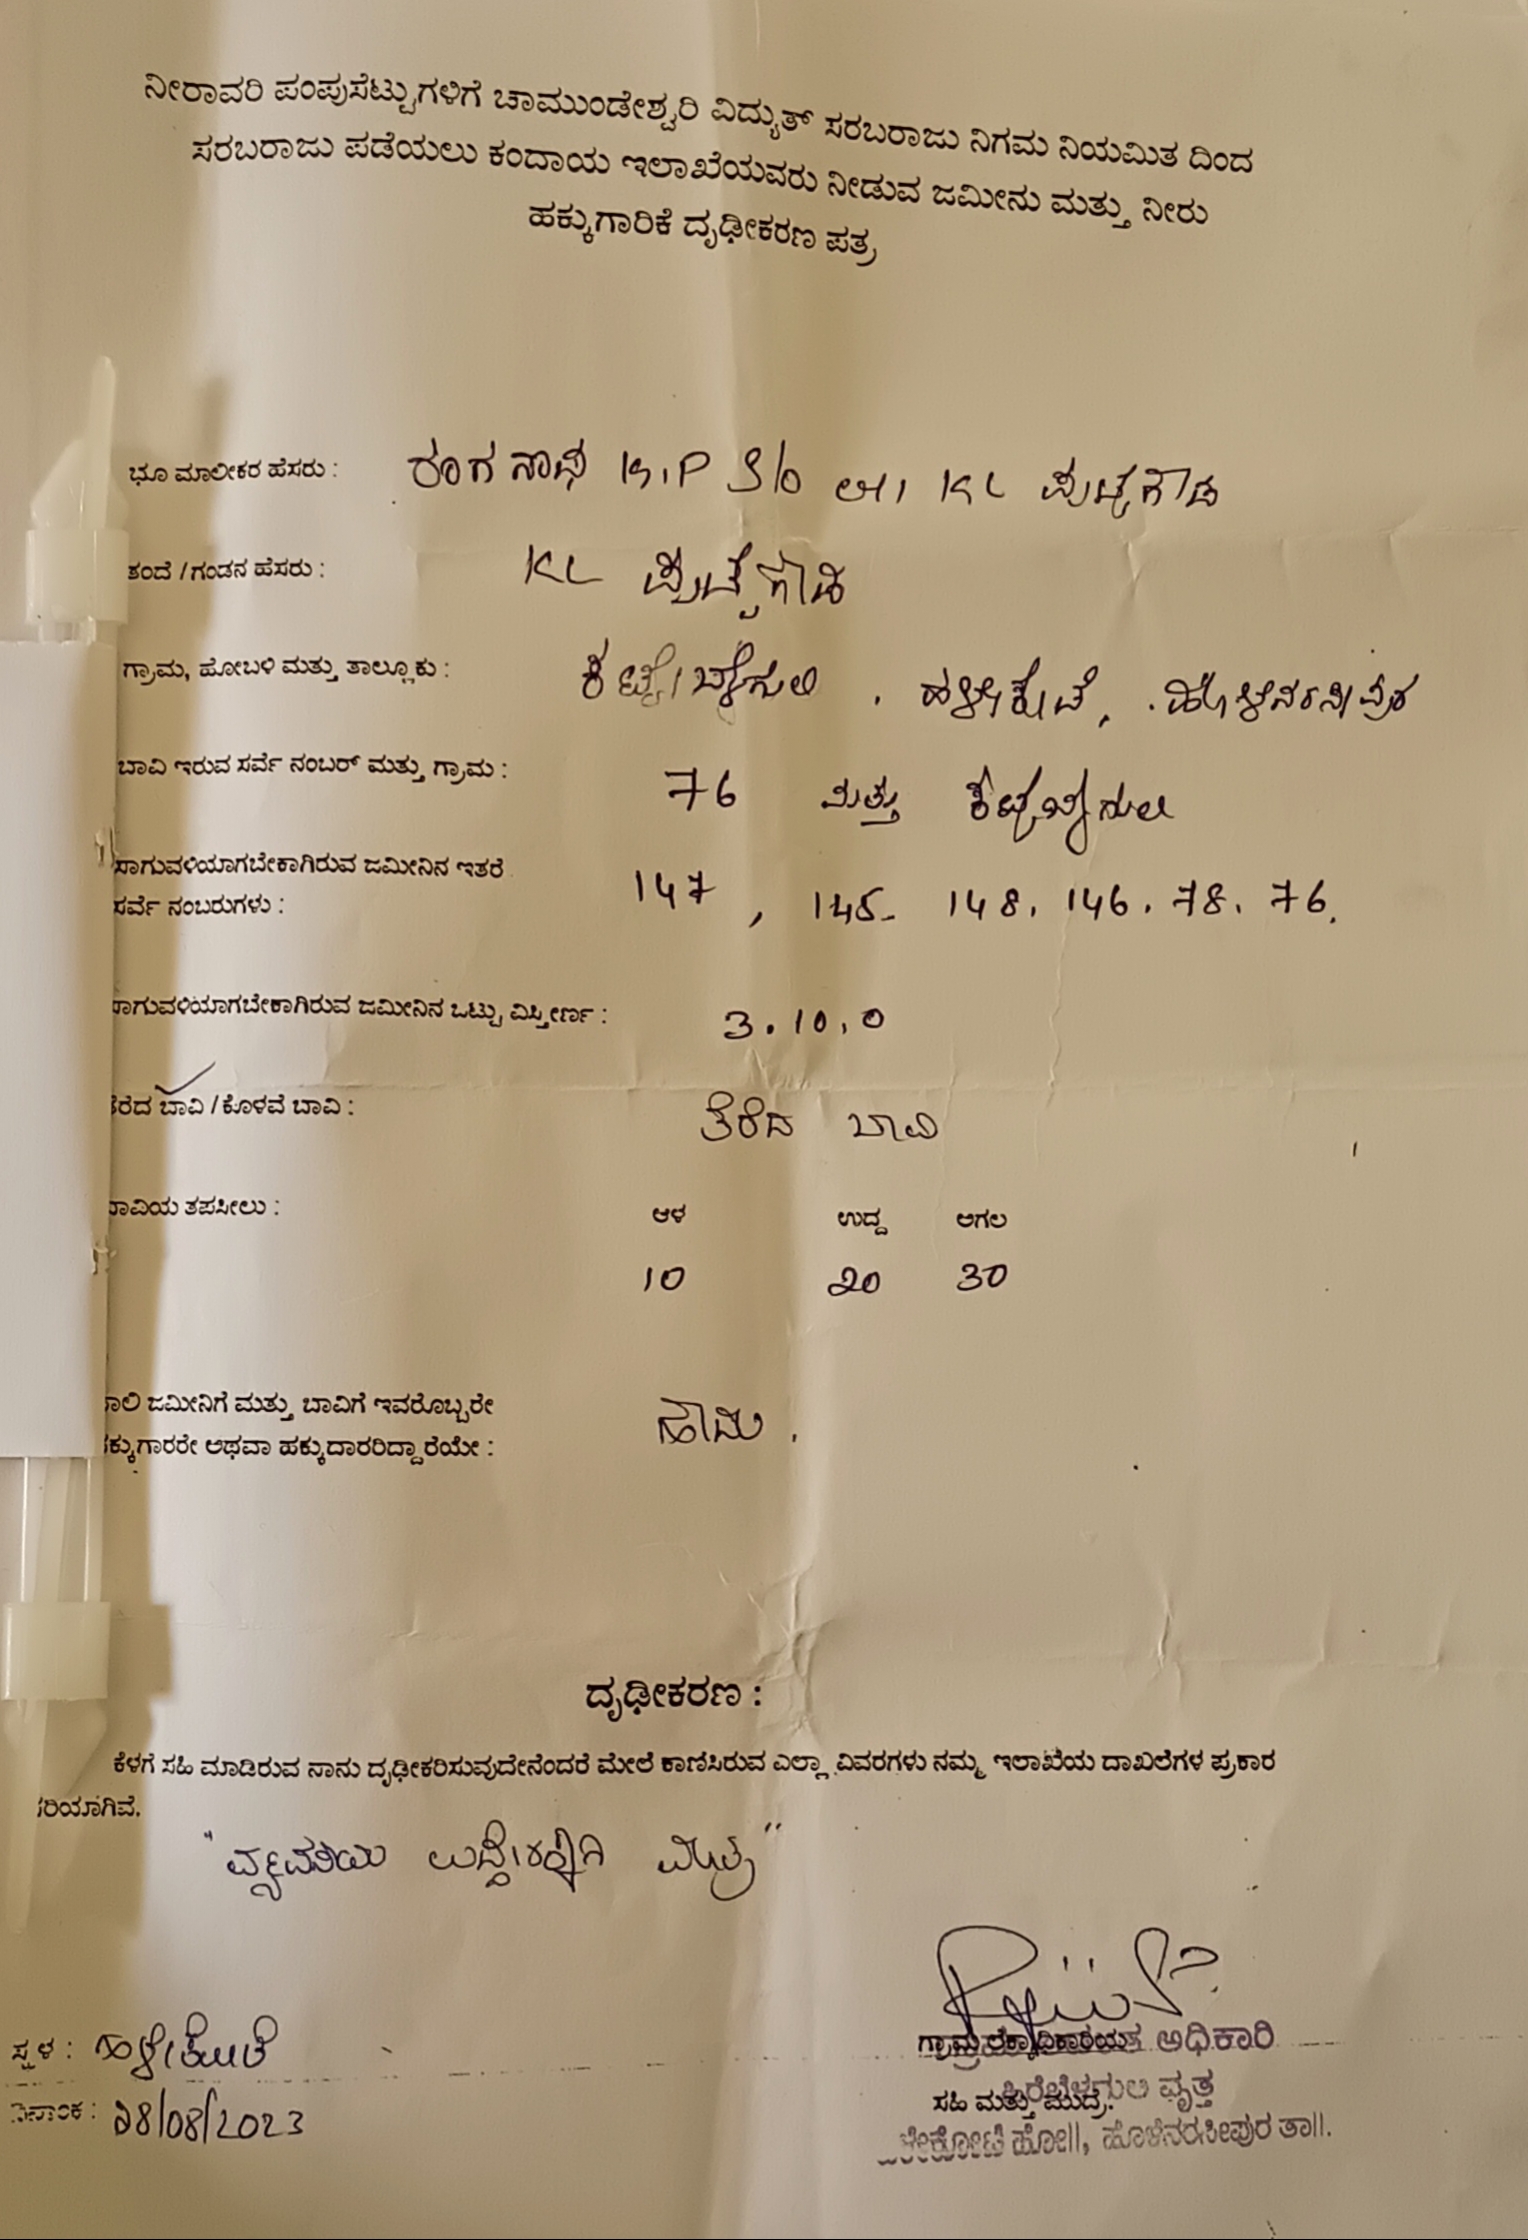 ನೀರಾವರಿ ಪಂಪುಸೆಟ್ಟುಗಳಿಗೆ ಚಾಮುಂಡೇಶ್ವರಿ ವಿದ್ಯುತ್ ಸರಬರಾಜು ನಿಗಮ ನಿಯಮಿತ ದಿಂದ
ಸರಬರಾಜು ಪಡೆಯಲು ಕಂದಾಯ ಇಲಾಖೆಯವರು ನೀಡುವ ಜಮೀನು ಮತ್ತು ನೀರು
ಹಕ್ಕುಗಾರಿಕೆ ದೃಢೀಕರಣ ಪತ್ರ
ಭೂ ಮಾಲೀಕರ ಹೆಸರು : ರಂಗನಾಥ K.P S/o KL ಪುಟ್ಟೇಗೌಡ
ತಂದೆ / ಗಂಡನ ಹೆಸರು : KL ಪುಟ್ಟೇಗೌಡ
ಗ್ರಾಮ, ಹೋಬಳಿ ಮತ್ತು ತಾಲ್ಲೂಕು : ಹಳೇಕೋಟೆ, ಹೊಳೆನರಸೀಪುರ
ಬಾವಿ ಇರುವ ಸರ್ವೆ ನಂಬರ್ ಮತ್ತು ಗ್ರಾಮ : 76 ಮತ್ತು
ಸಾಗುವಳಿಯಾಗಬೇಕಾಗಿರುವ ಜಮೀನಿನ ಇತರೆ
ಸರ್ವೆ ನಂಬರುಗಳು : 147, 145. 148. 146. 78. 76.
ಸಾಗುವಳಿಯಾಗಬೇಕಾಗಿರುವ ಜಮೀನಿನ ಒಟ್ಟು ವಿಸ್ತೀರ್ಣ : 3.10.0
ತೆರೆದ ಬಾವಿ / ಕೊಳವೆ ಬಾವಿ : ತೆರೆದ ಬಾವಿ
ಬಾವಿಯ ತಪಸೀಲು : ಆಳ ಉದ್ದ ಅಗಲ
10 20 30
ಜಮೀನಿಗೆ ಮತ್ತು ಬಾವಿಗೆ ಇವರೊಬ್ಬರೇ
ಹಕ್ಕುಗಾರರೇ ಅಥವಾ ಹಕ್ಕುದಾರರಿದ್ದಾರೆಯೇ : ಹೌದು.
ದೃಢೀಕರಣ :
ಕೆಳಗೆ ಸಹಿ ಮಾಡಿರುವ ನಾನು ದೃಢೀಕರಿಸುವುದೇನೆಂದರೆ ಮೇಲೆ ಕಾಣಿಸಿರುವ ಎಲ್ಲಾ ವಿವರಗಳು ನಮ್ಮ ಇಲಾಖೆಯ ದಾಖಲೆಗಳ ಪ್ರಕಾರ
ಸರಿಯಾಗಿವೆ.
ಗ್ರಾಮ ಅಧಿಕಾರಿ
ಸ್ಥಳ : ಹಳೇಕೋಟೆ
ವೃತ್ತ
ಸಹಿ ಮತ್ತು ಮುದ್ರೆ
ದಿನಾಂಕ : 28/08/2023
ಹೋ||, ಹೊಳೆನರಸೀಪುರ ತಾ||.